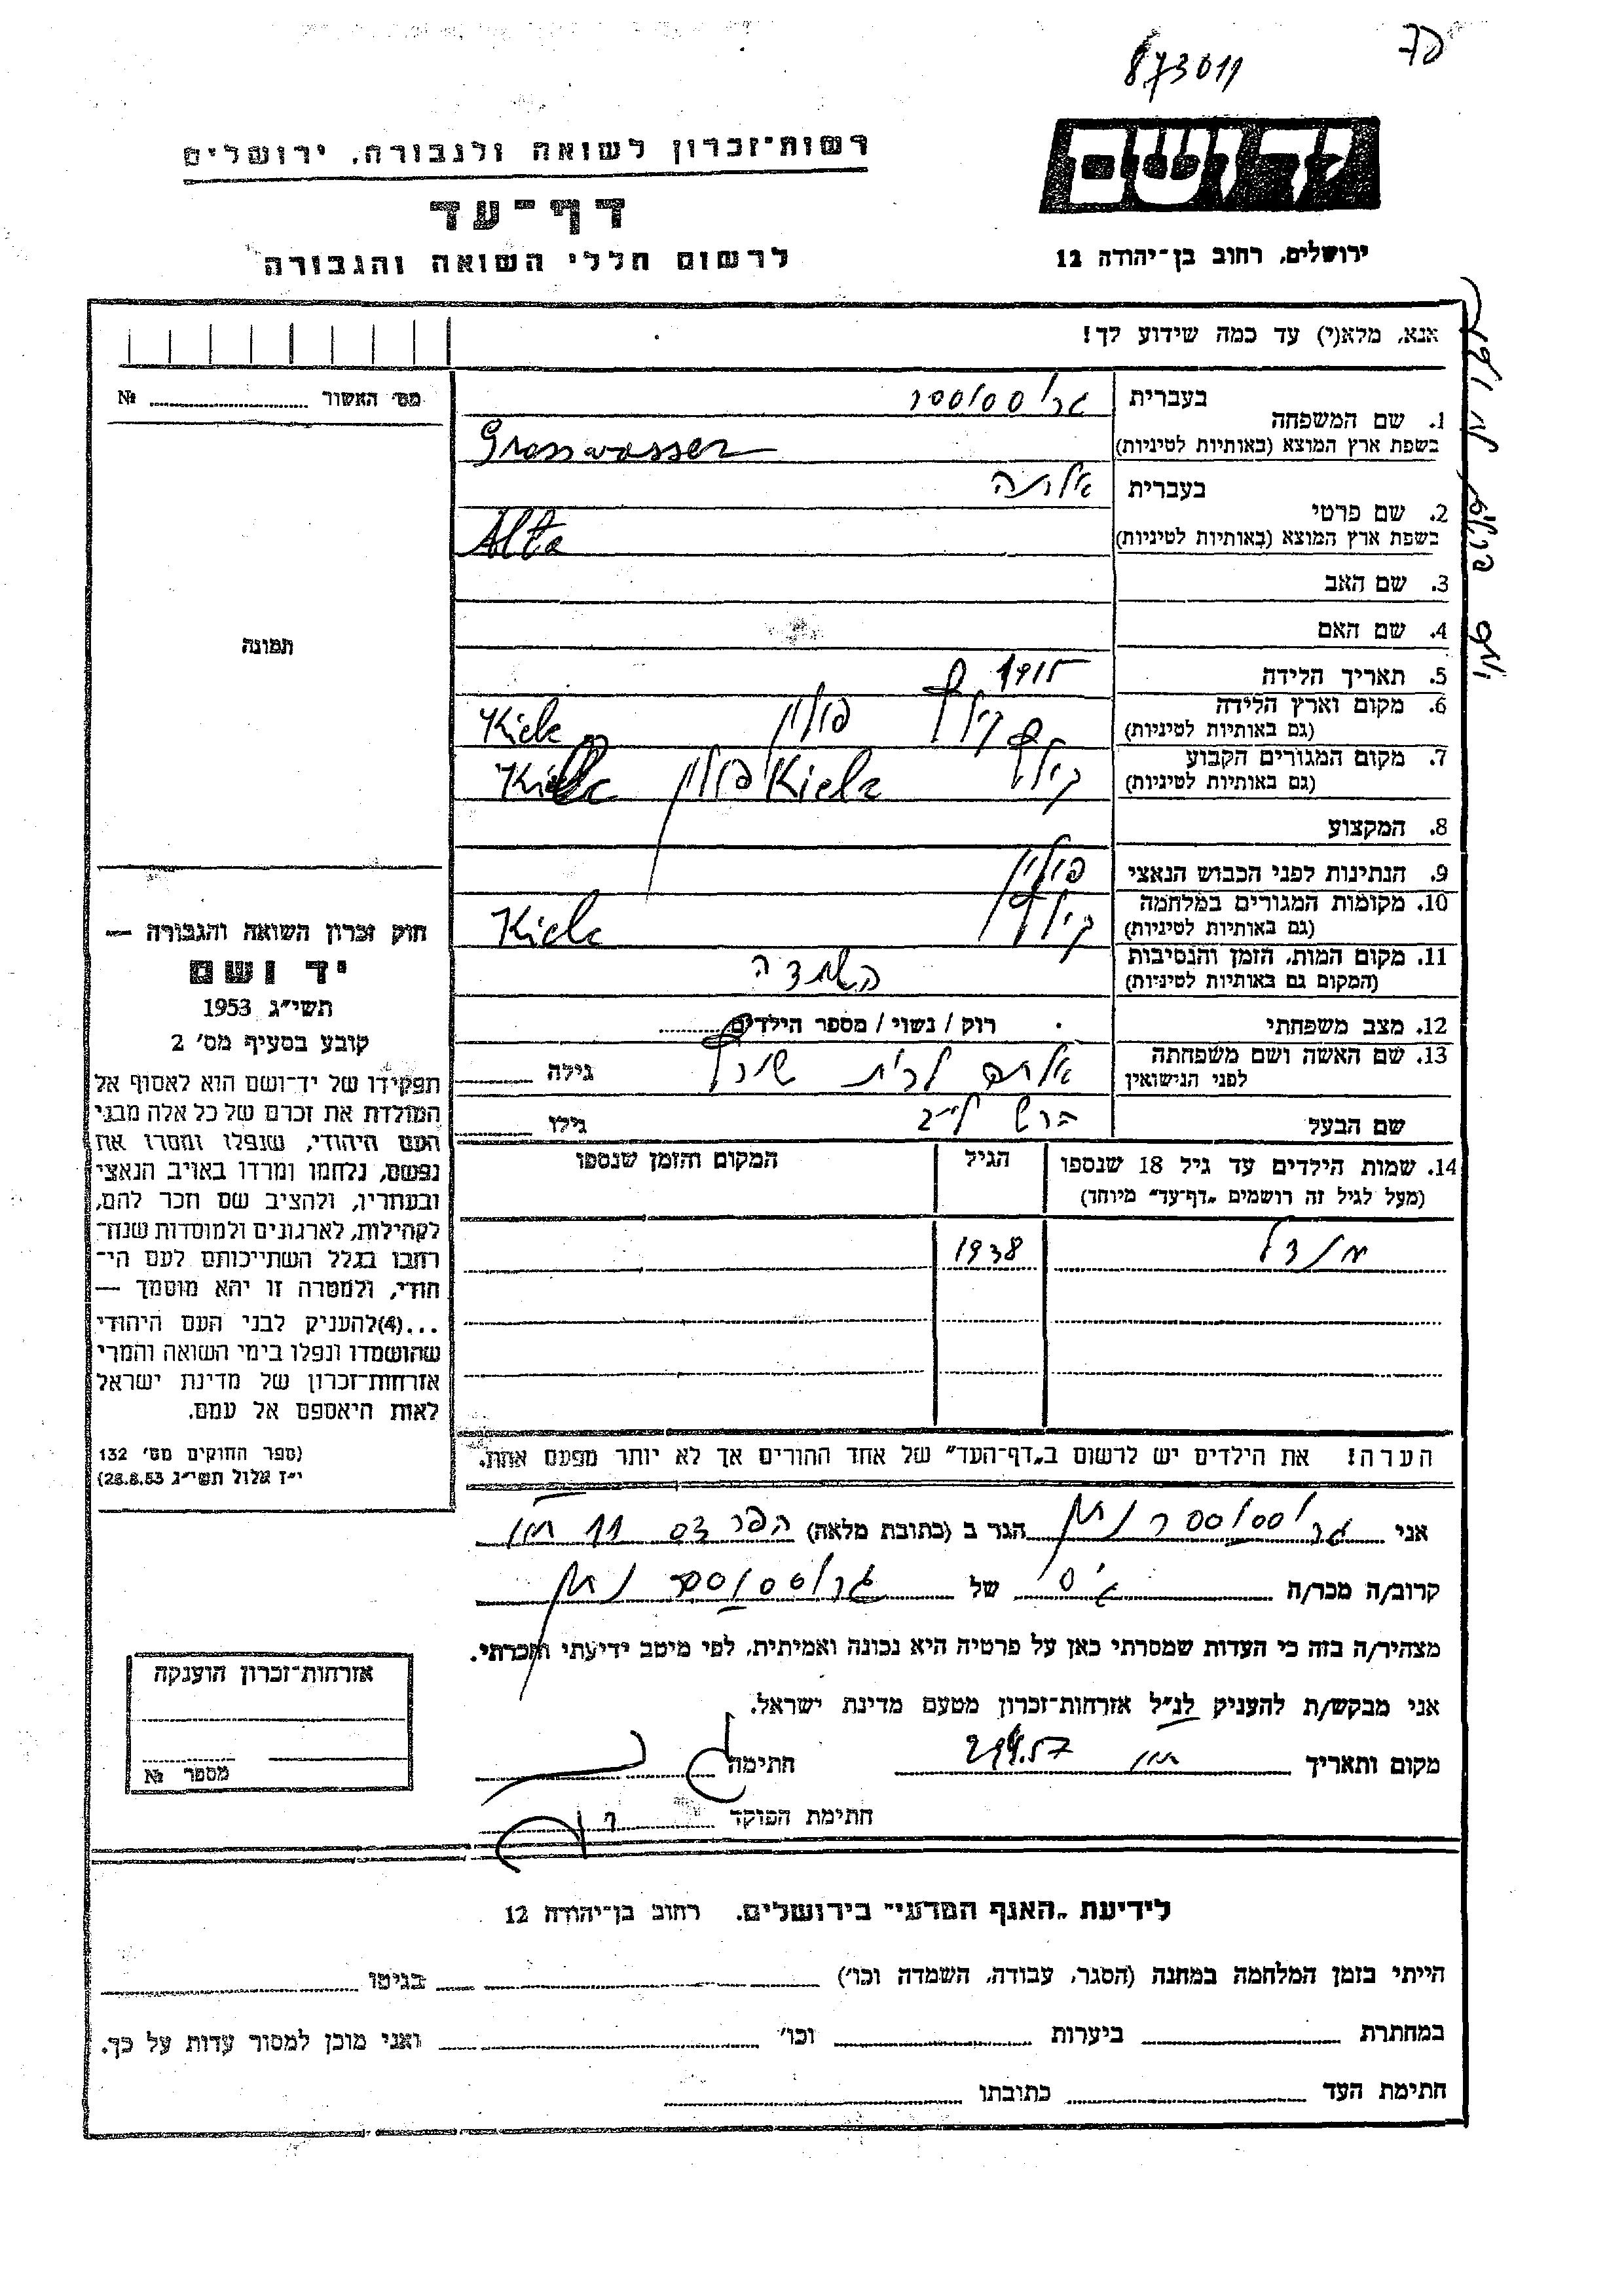 873011
רשות־זכרון לשואה ולגבורה, ירושלים
דף־עד
לרשום חללי השואה והגבורה
יד ושם
ירושלים, רחוב בן־יהודה 12
אנא, מלא(י) עד כמה שידוע לך!
מס׳ האשור № 
1. שם המשפחה
בעברית גרוסוסר
בשפת ארץ המוצא (באותיות לטיניות) Grosswasser
2. שם פרטי
בעברית אלתה
בשפת ארץ המוצא (באותיות לטיניות) Alta
3. שם האב
4. שם האם
5. תאריך הלידה 1915
6. מקום וארץ הלידה
(גם באותיות לטיניות) קילץ פולין Kielc
7. מקום המגורים הקבוע
(גם באותיות לטיניות) קילץ Kielc פולין
8. המקצוע
9. הנתינות לפני הכבוש הנאצי פולין
10. מקומות המגורים במלחמה
(גם באותיות לטיניות) קילץ Kielc
11. מקום המות, הזמן והנסיבות
(המקום גם באותיות לטיניות) השמדה
12. מצב משפחתי רוק / נשוי / מספר הילדים
13. שם האשה ושם משפחתה
לפני הנישואין לבית גילה
שם הבעל הרש לייב גילו
14. שמות הילדים עד גיל 18 שנספו
(מעל לגיל זה רושמים „דף־עד״ מיוחד)
הגיל
המקום והזמן שנספו
1938
הערה! את הילדים יש לרשום ב„דף־העד״ של אחד ההורים אך לא יותר מפעם אחת.
תמונה
חוק זכרון השואה והגבורה —
יד ושם
תשי״ג 1953
קובע בסעיף מס׳ 2
תפקידו של יד־ושם הוא לאסוף אל
המולדת את זכרם של כל אלה מבני
העם היהודי, שנפלו ומסרו את
נפשם, נלחמו ומרדו באויב הנאצי
ובעוזריו, ולהציב שם וזכר להם,
לקהילות, לארגונים ולמוסדות שנח־
רבו בגלל השתייכותם לעם הי־
הודי, ולמטרה זו יהא מוסמך —
...(4)להעניק לבני העם היהודי
שהושמדו ונפלו בימי השואה והמרי
אזרחות־זכרון של מדינת ישראל
לאות היאספם אל עמם.
(ספר החוקים מס׳ 132
י״ז אלול תשי״ג 28.8.53)
אני גרוסוסר נתן הגר ב (כתובת מלאה) הפרדס 11 חולון
קרוב/ה מכר/ה גיס של גרוסוסר נתן
מצהיר/ה בזה כי העדות שמסרתי כאן על פרטיה היא נכונה ואמיתית, לפי מיטב ידיעתי והכרתי.
אני מבקש/ת להעניק לנ״ל אזרחות־זכרון מטעם מדינת ישראל.
מקום ותאריך חתימה
חתימת הפוקד
אזרחות־זכרון הוענקה
מספר №
לידיעת „האגף המדעי״ בירושלים. רחוב בן־יהודה 12
הייתי בזמן המלחמה במחנה (הסגר, עבודה, השמדה וכו׳) בגיטו
במחתרת ביערות וכו׳ ואני מוכן למסור עדות על כך.
חתימת העד כתובתו